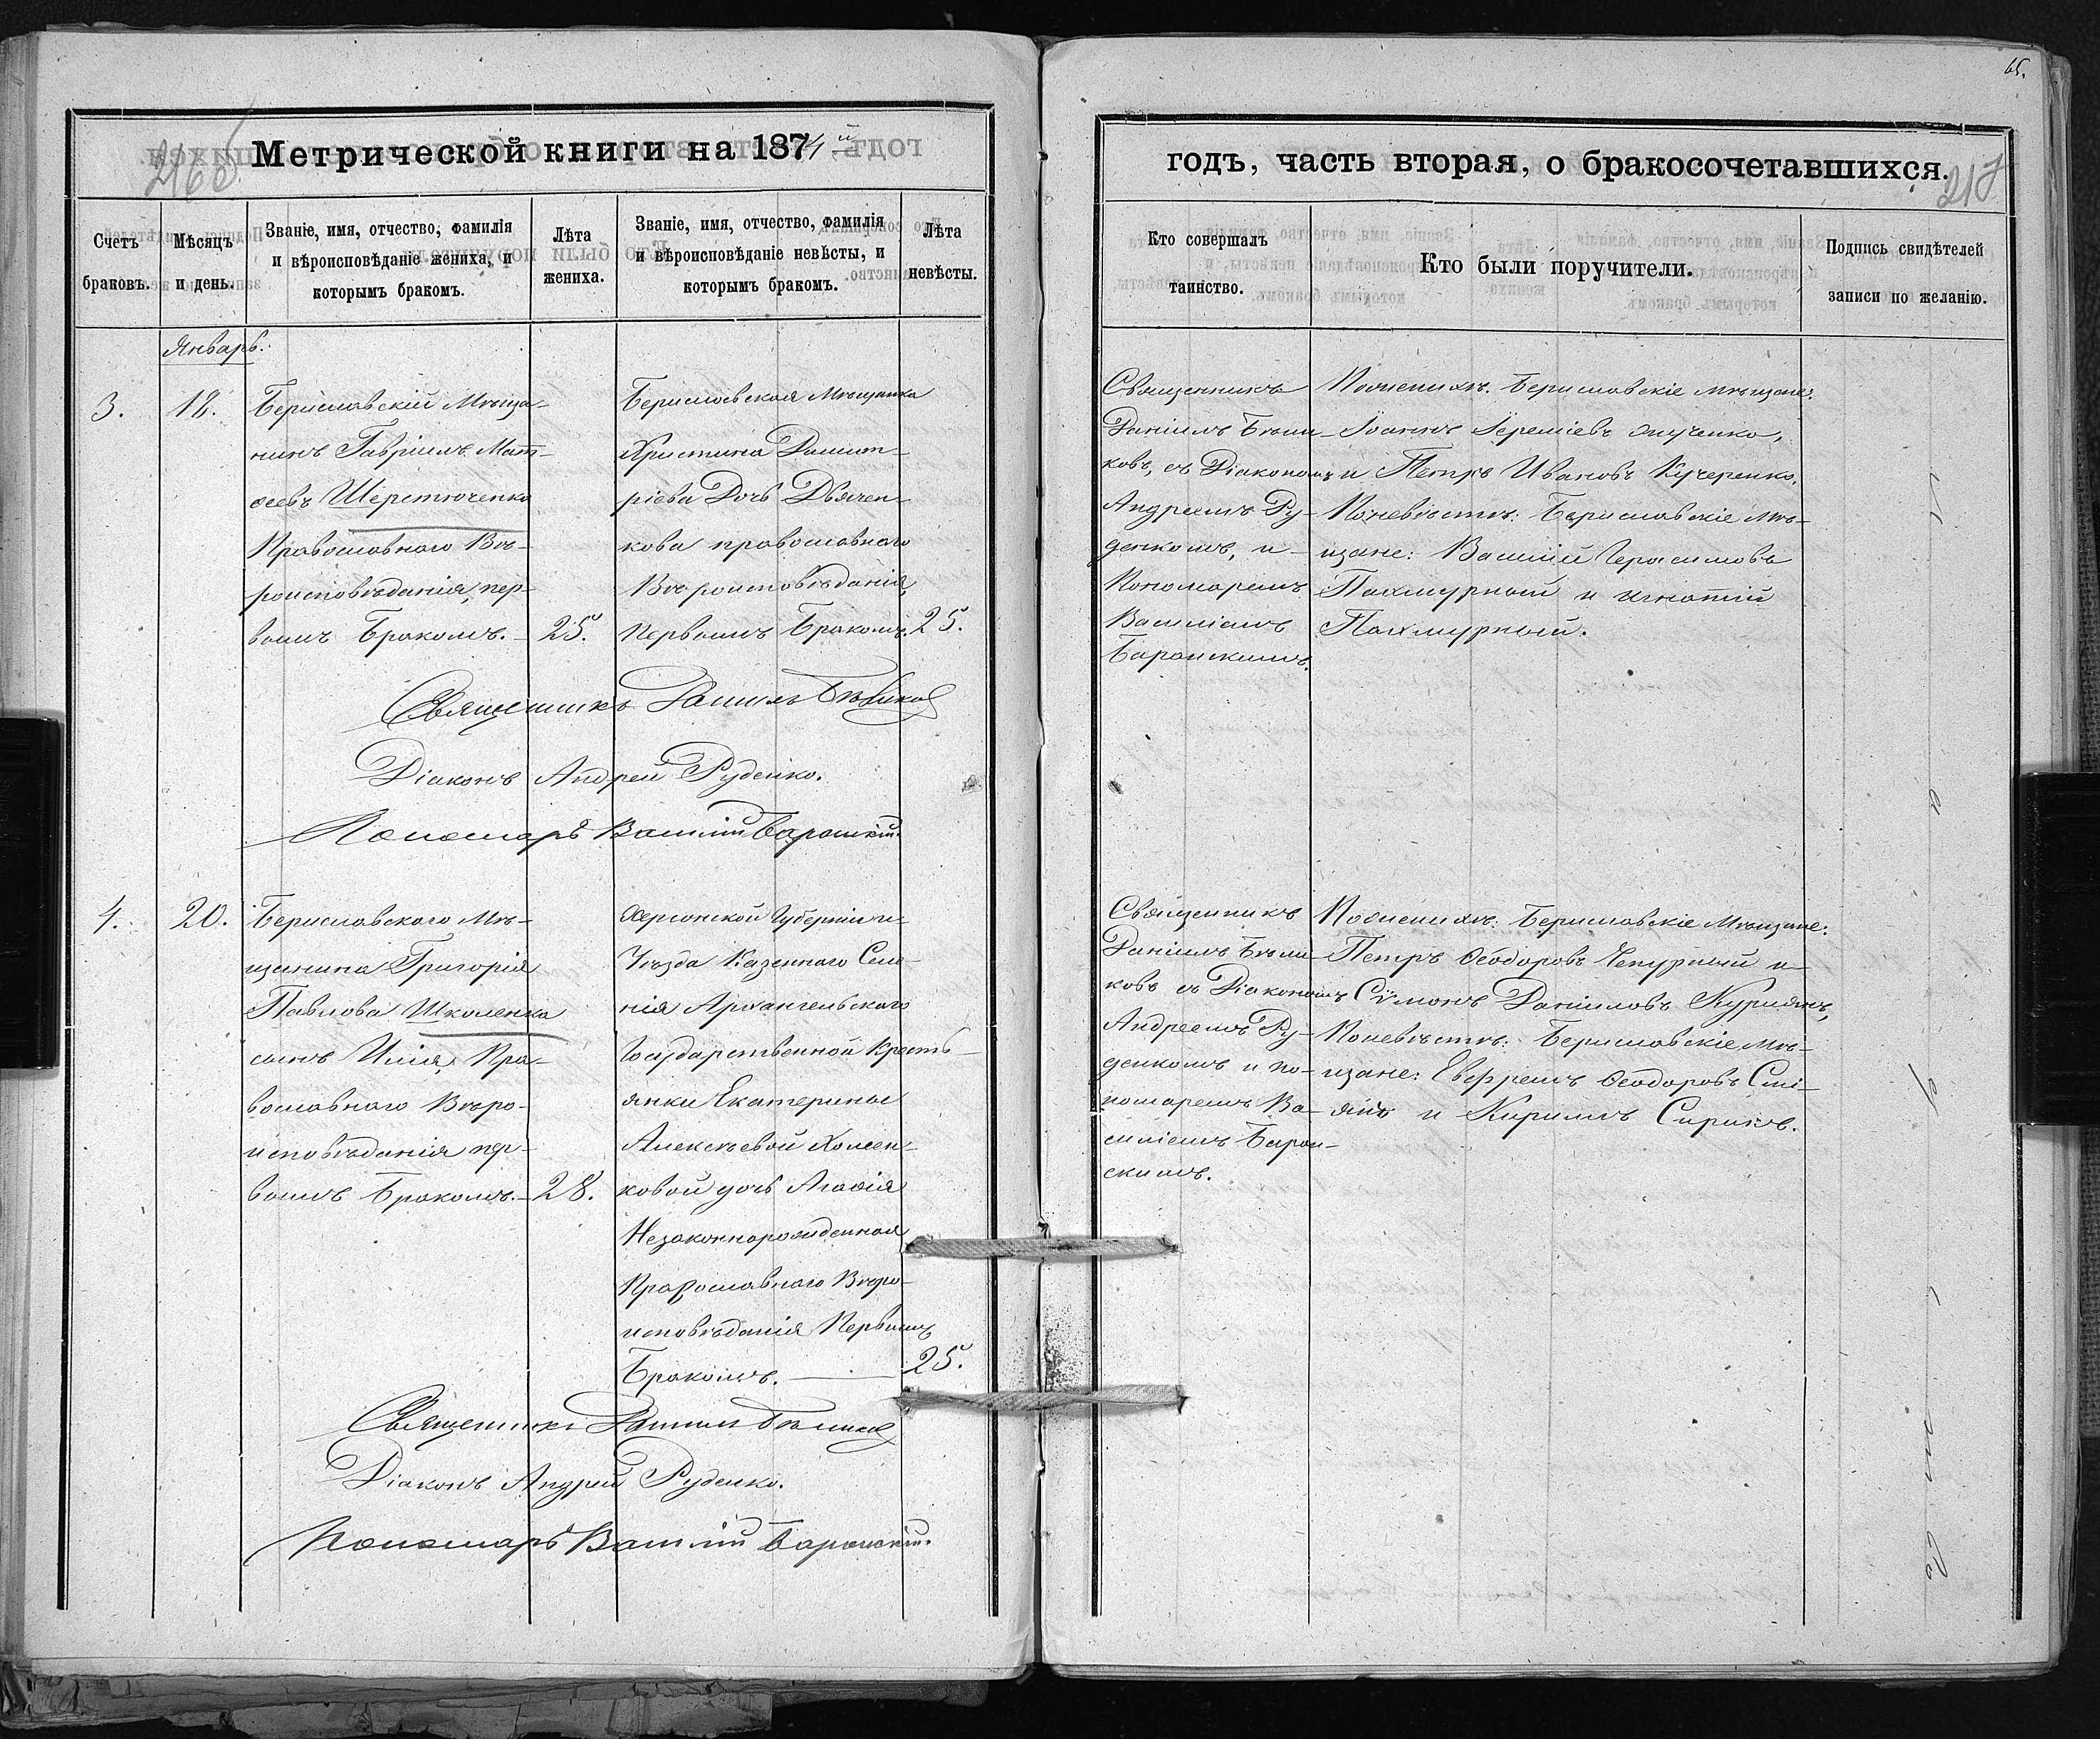 65.
Метрической книги на 1874й
годъ, часть вторая, о бракосочетавшихся.
217
Счетъ браковъ.
Мѣсяцъ и день.
Званіе, имя, отчество, фамилія и вѣроисповѣданіе жениха, и которымъ бракомъ.
Лѣта жениха.
Званіе, имя, отчество, фамилія и вѣроисповѣданіе невѣсты, и которымъ бракомъ.
Лѣта невѣсты.
Кто совершалъ таинство.
Кто были поручители.
Подпись свидѣтелей записи по желанію.
Январь.
3.
18.
Бериславскій Мѣща-
нинъ Гавріилъ Мат-
ѳеевъ Шерстюченко
Православнаго Вѣ-
роисповѣданія, пер-
вымъ Бракомъ.
25.
Бериславская Мѣщанка
Христина Димит-
ріева Дочь Дьячен-
кова православнаго
Вѣроисповѣданія,
Первымъ Бракомъ.
25.
Священникъ
Даніилъ Бѣли-
ковъ, съ Діакономъ
Андреемъ Ру-
денкомъ, и
Пономаремъ
Василіемъ
Баранскимъ.
Поженихѣ: Бериславскіе мѣщане:
Іоаннъ Іереміевъ
и Петръ Ивановъ Кучеренко.
Поневѣстѣ: Бериславскіе Мѣ-
щане: Василій Герасимовъ
Пахмурный и Игнатій
Пахмурный.
Священникъ Даніилъ Бѣликовъ
Діаконъ Андрей Руденко.
Пономарь Василій Баранскій.
4.
20.
Бериславского Мѣ-
щанина Григорія
Павлова Школенка
сынъ Илія, Пра-
вославнаго Вѣро-
исповѣданія пер-
вымъ Бракомъ.
28.
Херсонской Губерніи и
Уѣзда Казеннаго Селе-
нія Архангельскаго
Государственной Кресть-
янки Екатерины
Алексѣевой Хомен-
ковой дочь Агафія
Незаконнорожденная
Православнаго Вѣро-
исповѣданія Первымъ
Бракомъ.
25.
Священникъ
Даніилъ Бѣли-
ковъ съ Діакономъ
Андреемъ Ру-
денкомъ и по-
номаремъ Ва-
силіемъ Баран-
скимъ.
Поженихѣ: Бериславскіе Мѣщане:
Петръ Ѳеодоровъ Чепурный и
Сѵмонъ Даніиловъ
Поневѣстѣ: Бериславскіе Мѣ-
щане: Ѳеодоровъ
и Кирилъ
Священникъ Даніилъ Бѣликовъ
Діаконъ Андрей Руденко.
Пономарь Василій Баранскій.